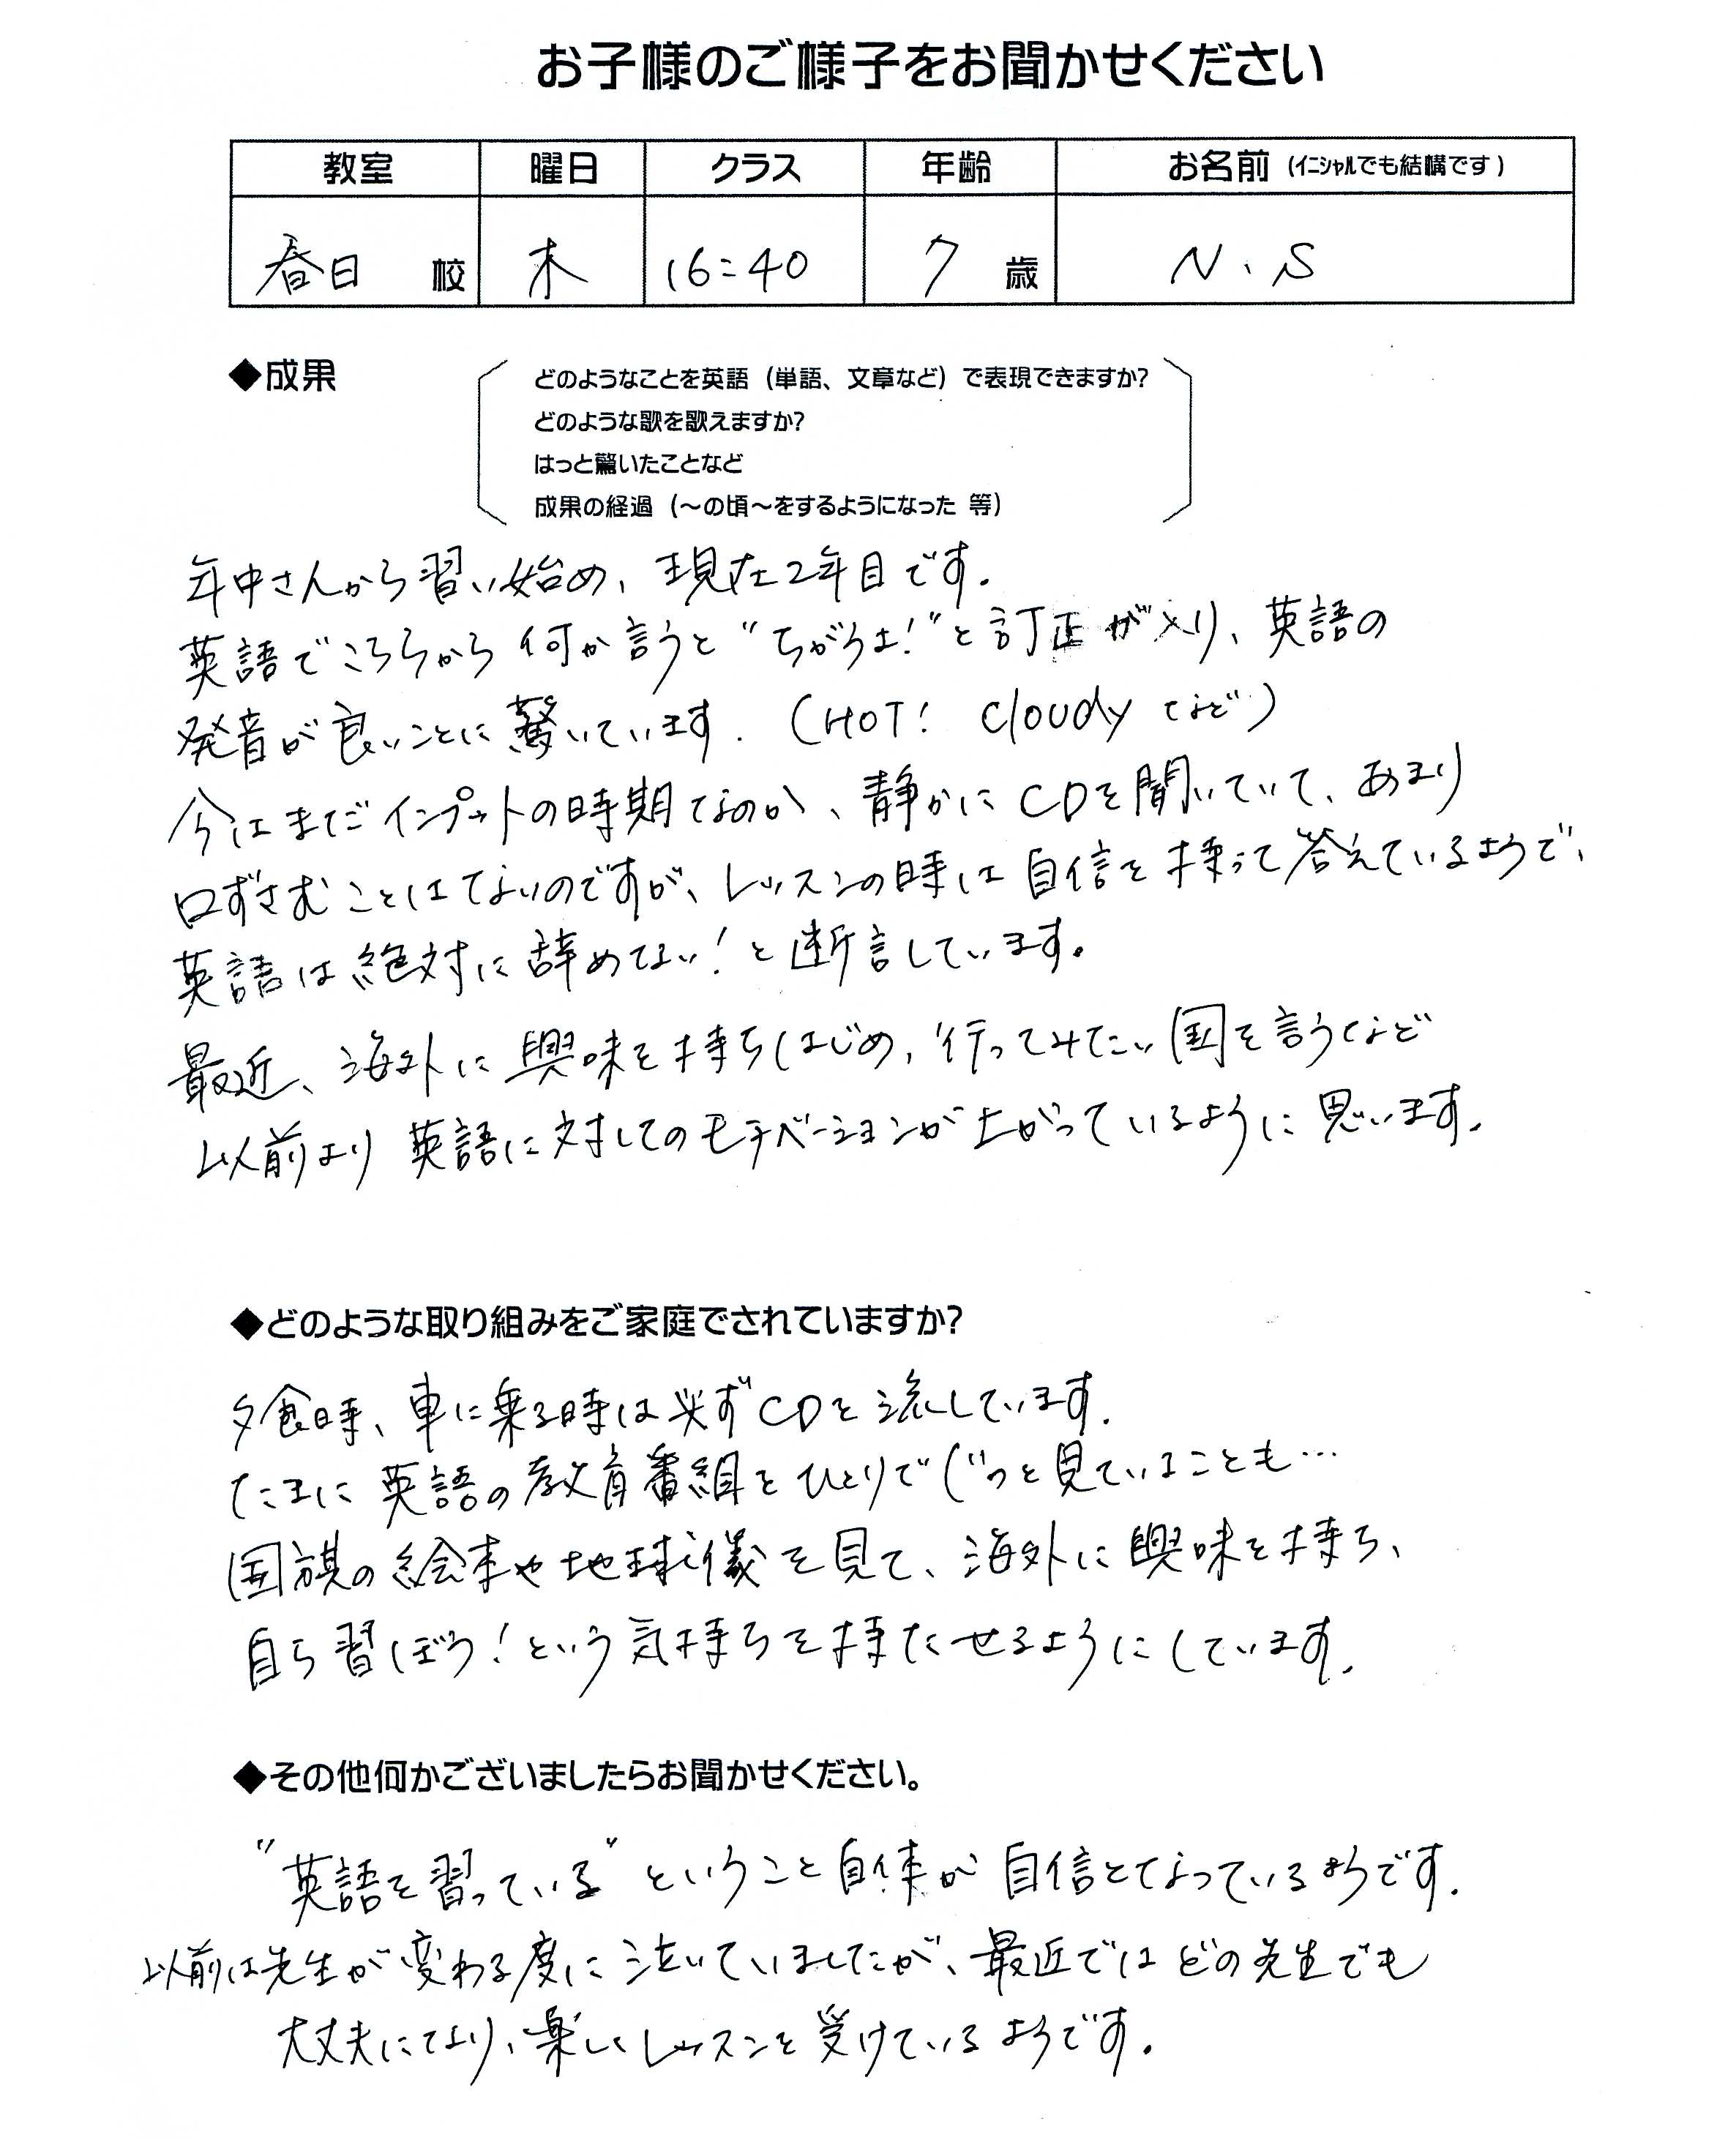 お子様のご様子をお聞かせください
教室 曜日 クラス 年齢 お名前 (イニシャルでも結構です)
春日 校 木 16:40 7 歳 N.S
◆成果
どのようなことを英語（単語、文章など）で表現できますか?
どのような歌を歌えますか?
はっと驚いたことなど
成果の経過（～の頃～をするようになった 等）
年中さんから習い始め、現在2年目です。
英語でこちらから何か言うと"ちがうよ!"と訂正が入り、英語の
発音が良いことに驚いています.（HOT! cloudy など）
今はまだインプットの時期なのか、静かにCDを聞いていて、あまり
口ずさむことはないのですが、レッスンの時は自信を持って答えているようで、
英語は絶対に辞めない!と断言しています。
最近、海外に興味を持ちはじめ、行ってみたい国を言うなど
以前より英語に対してのモチベーションが上がっているように思います.
◆どのような取り組みをご家庭でされていますか?
夕食時、車に乗る時は必ずCDを流しています.
たまに英語の教育番組をひとりでじっと見ていることも…
国旗の絵本や地球儀を見て、海外に興味を持ち、
自ら習ぼう!という気持ちを持たせるようにしています.
◆その他何かございましたらお聞かせください。
"英語を習っている"ということ自体が自信となっているようです.
以前は先生が変わる度に泣いていましたが、最近ではどの先生でも
大丈夫になり、楽しくレッスンを受けているようです.